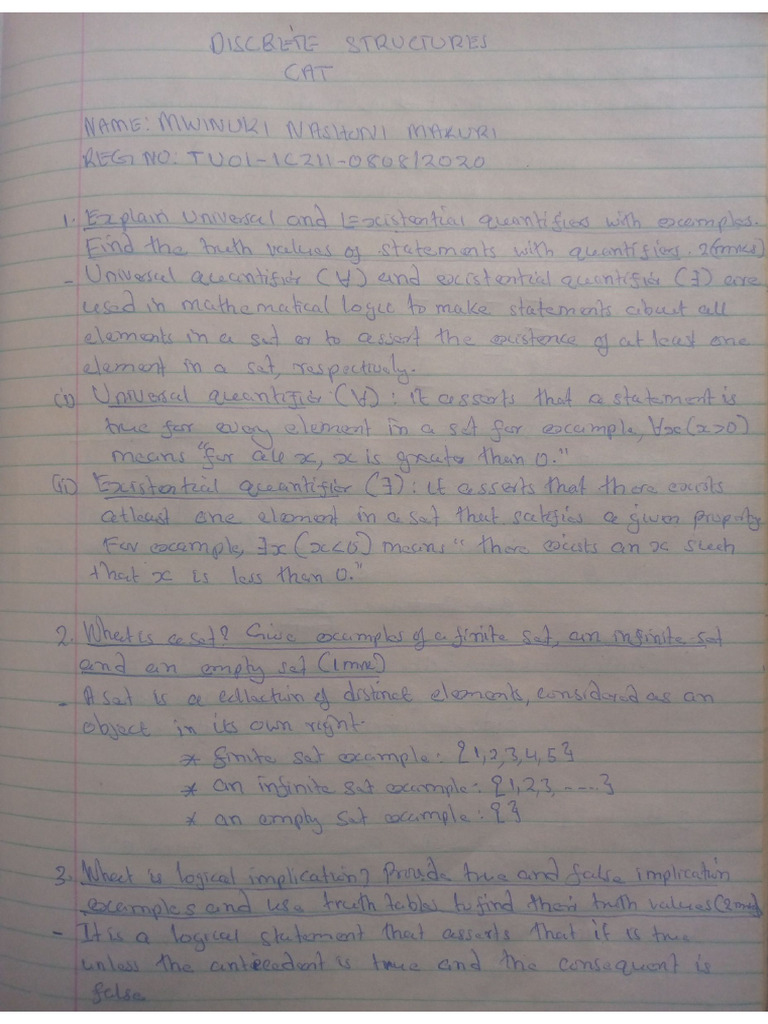 DISCRETE STRUCTURES
CAT
NAME: MWINUKI NASHONI MAKURI
REG NO: TU01-IC211-0808/2020
1. Explain Universal and Existential quantifiers with examples.
Find the truth values of statements with quantifiers. 2(mks)
- Universal quantifier (∀) and existential quantifier (∃) are
used in mathematical logic to make statements about all
elements in a set or to assert the existence of at least one
element in a set, respectively.
(i) Universal quantifier (∀): it asserts that a statement is
true for every element in a set for example, ∀x(x>0)
means "for all x, x is greater than 0."
(ii) Existential quantifier (∃): it asserts that there exists
atleast one element in a set that satisfies a given property
For example, ∃x(x<0) means "there exists an x such
that x is less than 0."
2. What is a set? Give examples of a finite set, an infinite set
and an empty set (1mk)
- A set is a collection of distinct elements, considered as an
object in its own right.
* finite set example: {1,2,3,4,5}
* an infinite set example: {1,2,3, ....}
* an empty set example: {}
3. What is logical implication? Provide true and false implication
examples and use truth tables to find their truth values (2mks)
- It is a logical statement that asserts that it is true
unless the antecedent is true and the consequent is
false